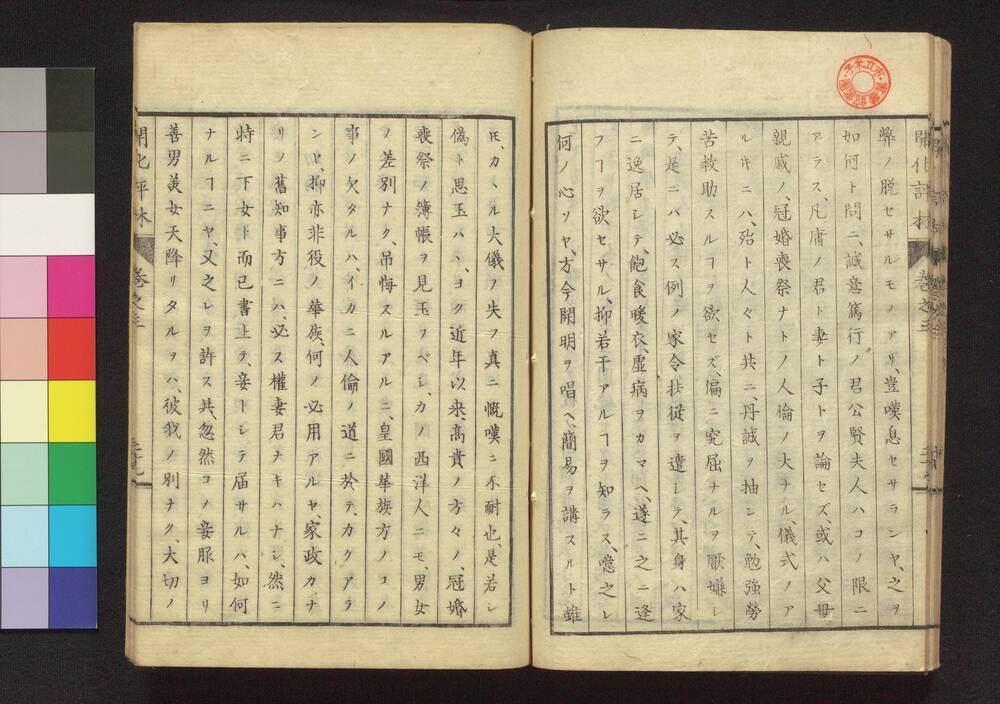 弊ノ脱セサルモノアリ、豈嘆息セサランヤ、之ヲ
如何ト問ニ、誠意篤行ノ君公賢夫人ハコノ限ニ
アラス、凡庸ノ君ト妻ト子トヲ論セズ、或ハ父母
親戚ノ、冠婚喪祭ナトノ人倫ノ大ナル、儀式ノア
ルキニハ、殆ト人々ト共ニ、丹誠ヲ抽ンテ、勉強勞
苦救助スルヿヲ欲セズ、偏ニ究屈ナルヲ厭嫌シ
テ、是ニハ必ス例ノ家令扶從ヲ遣シテ、其身ハ家
ニ逸居シテ、飽食暖衣、虚病ヲカマヘ、遂ニ之ニ逢
フヿヲ欲セサル、抑若干アルヿヲ知ラス、憶之レ
何ノ心ソヤ、方今開明ヲ唱ヘ、簡易ヲ講スルト雖
𪜈、カヽル大儀ヲ失ヲ真ニ慨嘆ニ不耐也、是若シ
偽ト思玉ハヽ、ヨク近年以来、高貴ノ方々ノ、冠婚
喪祭ノ簿帳ヲ見玉ヲベシ、カノ西洋人ニモ、男女
ノ差別ナク、吊悔スルアルニ、皇國華族方ノコノ
事ノ欠タルハ、イカニ人倫ノ道ニ於テ、カクアラ
ンヤ、抑亦非役ノ華族、何ノ必用アルヤ、家政カナ
リノ舊知事方ニハ、必ス權妻君ナキハナシ、然ニ
特ニ下女ト而已書上テ、妾トシテ届サルハ、如何
ナルヿニヤ、又之レヲ許ス共、忽然コノ妾服ヨリ
善男美女天降リタルヲハ、彼我ノ別ナク、大切ノ
開化評林
卷之三